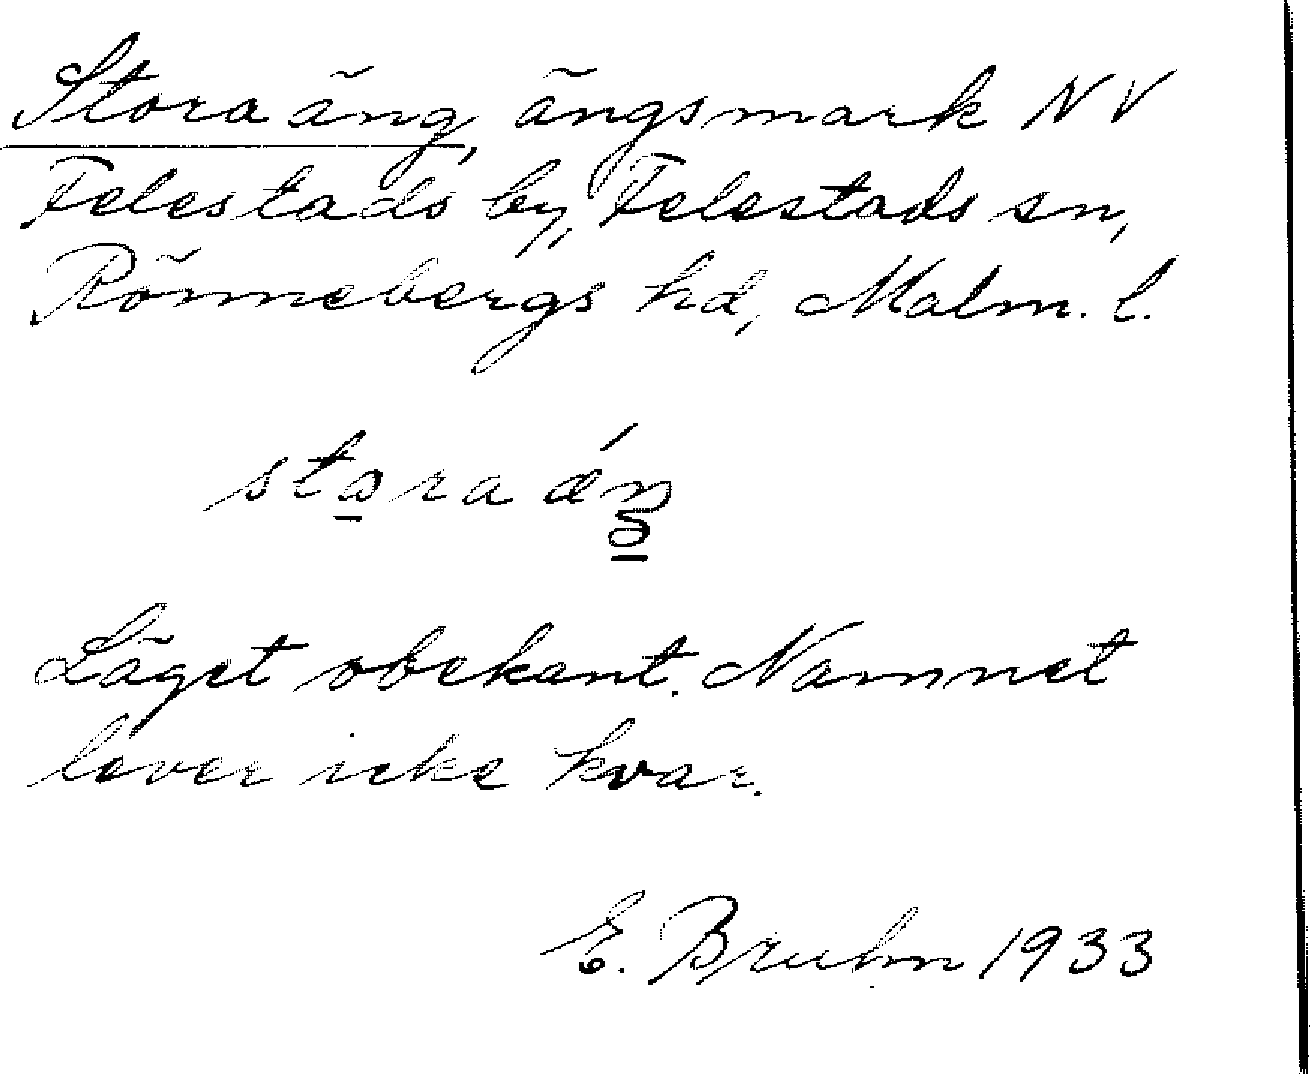 Stora äng, ängsmark NV
Felestads by, Felestads sn,
Rönnebergs hd, Malm. l.
stora
Läget obekant. Namnet
lever icke kvar.
E. Bruhn 1933